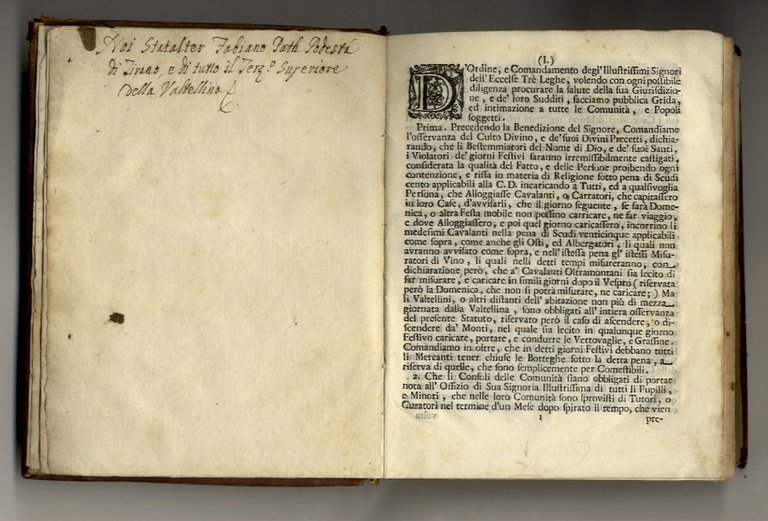 Noi Statalter Fabiano Path Podestà
di Tirano, e di tutto il Terz.º Superiore
della Valtellina
(I.)
D'Ordine, e Comandamento degl'Illustrissimi Signori
dell'Eccelse Trè Leghe, volendo con ogni possibile
diligenza procurare la salute della sua Giurisdizio-
ne, e de' loro Sudditi, facciamo pubblica Grida,
ed intimazione a tutte le Comunità, e Popoli
soggetti.
Prima. Precedendo la Benedizione del Signore, Comandiamo
l'osservanza del Culto Divino, e de' suoi Divini Precetti, dichia-
rando, che li Bestemmiatori del Nome di Dio, e de' suoi Santi,
i Violatori de' giorni Festivi saranno irremissibilmente castigati,
considerata la qualità del Fatto, e delle Persone proibendo ogni
contenzione, e rissa in materia di Religione sotto pena di Scudi
cento applicabili alla C. D. incaricando a Tutti, ed a qualsivoglia
Persona, che Alloggiasse Cavalanti, o Carratori, che capitassero
in loro Case, d'avvisarli, che il giorno seguente, se sarà Dome-
nica, o altra Festa mobile non possino carricare, ne far viaggio,
e dove Alloggiassero, e poi quel giorno caricassero, incorrino li
medesimi Cavalanti nella pena di Scudi venticinque applicabili
come sopra, come anche gli Osti, ed Albergatori, li quali non
avranno avvisato come sopra, e nell'istessa pena gl'istessi Misu-
ratori di Vino, li quali nelli detti tempi misureranno, con
dichiarazione però, che a' Cavalanti Oltramontani sia lecito di
far misurare, e caricare in simili giorni dopo il Vespro (riservata
però la Domenica, che non si potrà misurare, ne caricare;) Ma
li Valtellini, o altri distanti dell'abitazione non più di mezza
giornata dalla Valtellina, sono obbligati all'intiera osservanza
del presente Statuto, riservato però il caso di ascendere, o di-
scendere da' Monti, nel quale sia lecito in qualunque giorno
Festivo caricare, portare, e condurre le Vettovaglie, e Grassine.
Comandiamo in oltre, che in detti giorni Festivi debbano tutti
li Mercanti tener chiuse le Botteghe sotto la detta pena, a
riserva di quelle, che sono semplicemente per Comestibili.
2. Che li Consoli delle Comunità siano obbligati di portar
nota all'Offizio di Sua Signoria Illustrissima di tutti li Pupilli,
e Minori, che nelle loro Comunità sono sprovisti di Tutori, o
Curatori nel termine d'un Mese dopo spirato il tempo, che vien
1 pre-